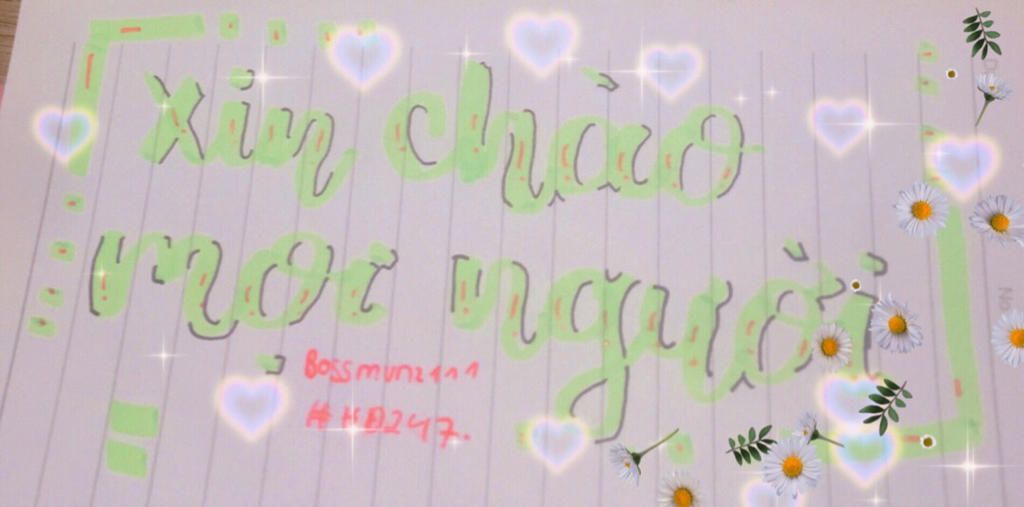 xin chào
mọi người
Bossmun2111
#HD247.